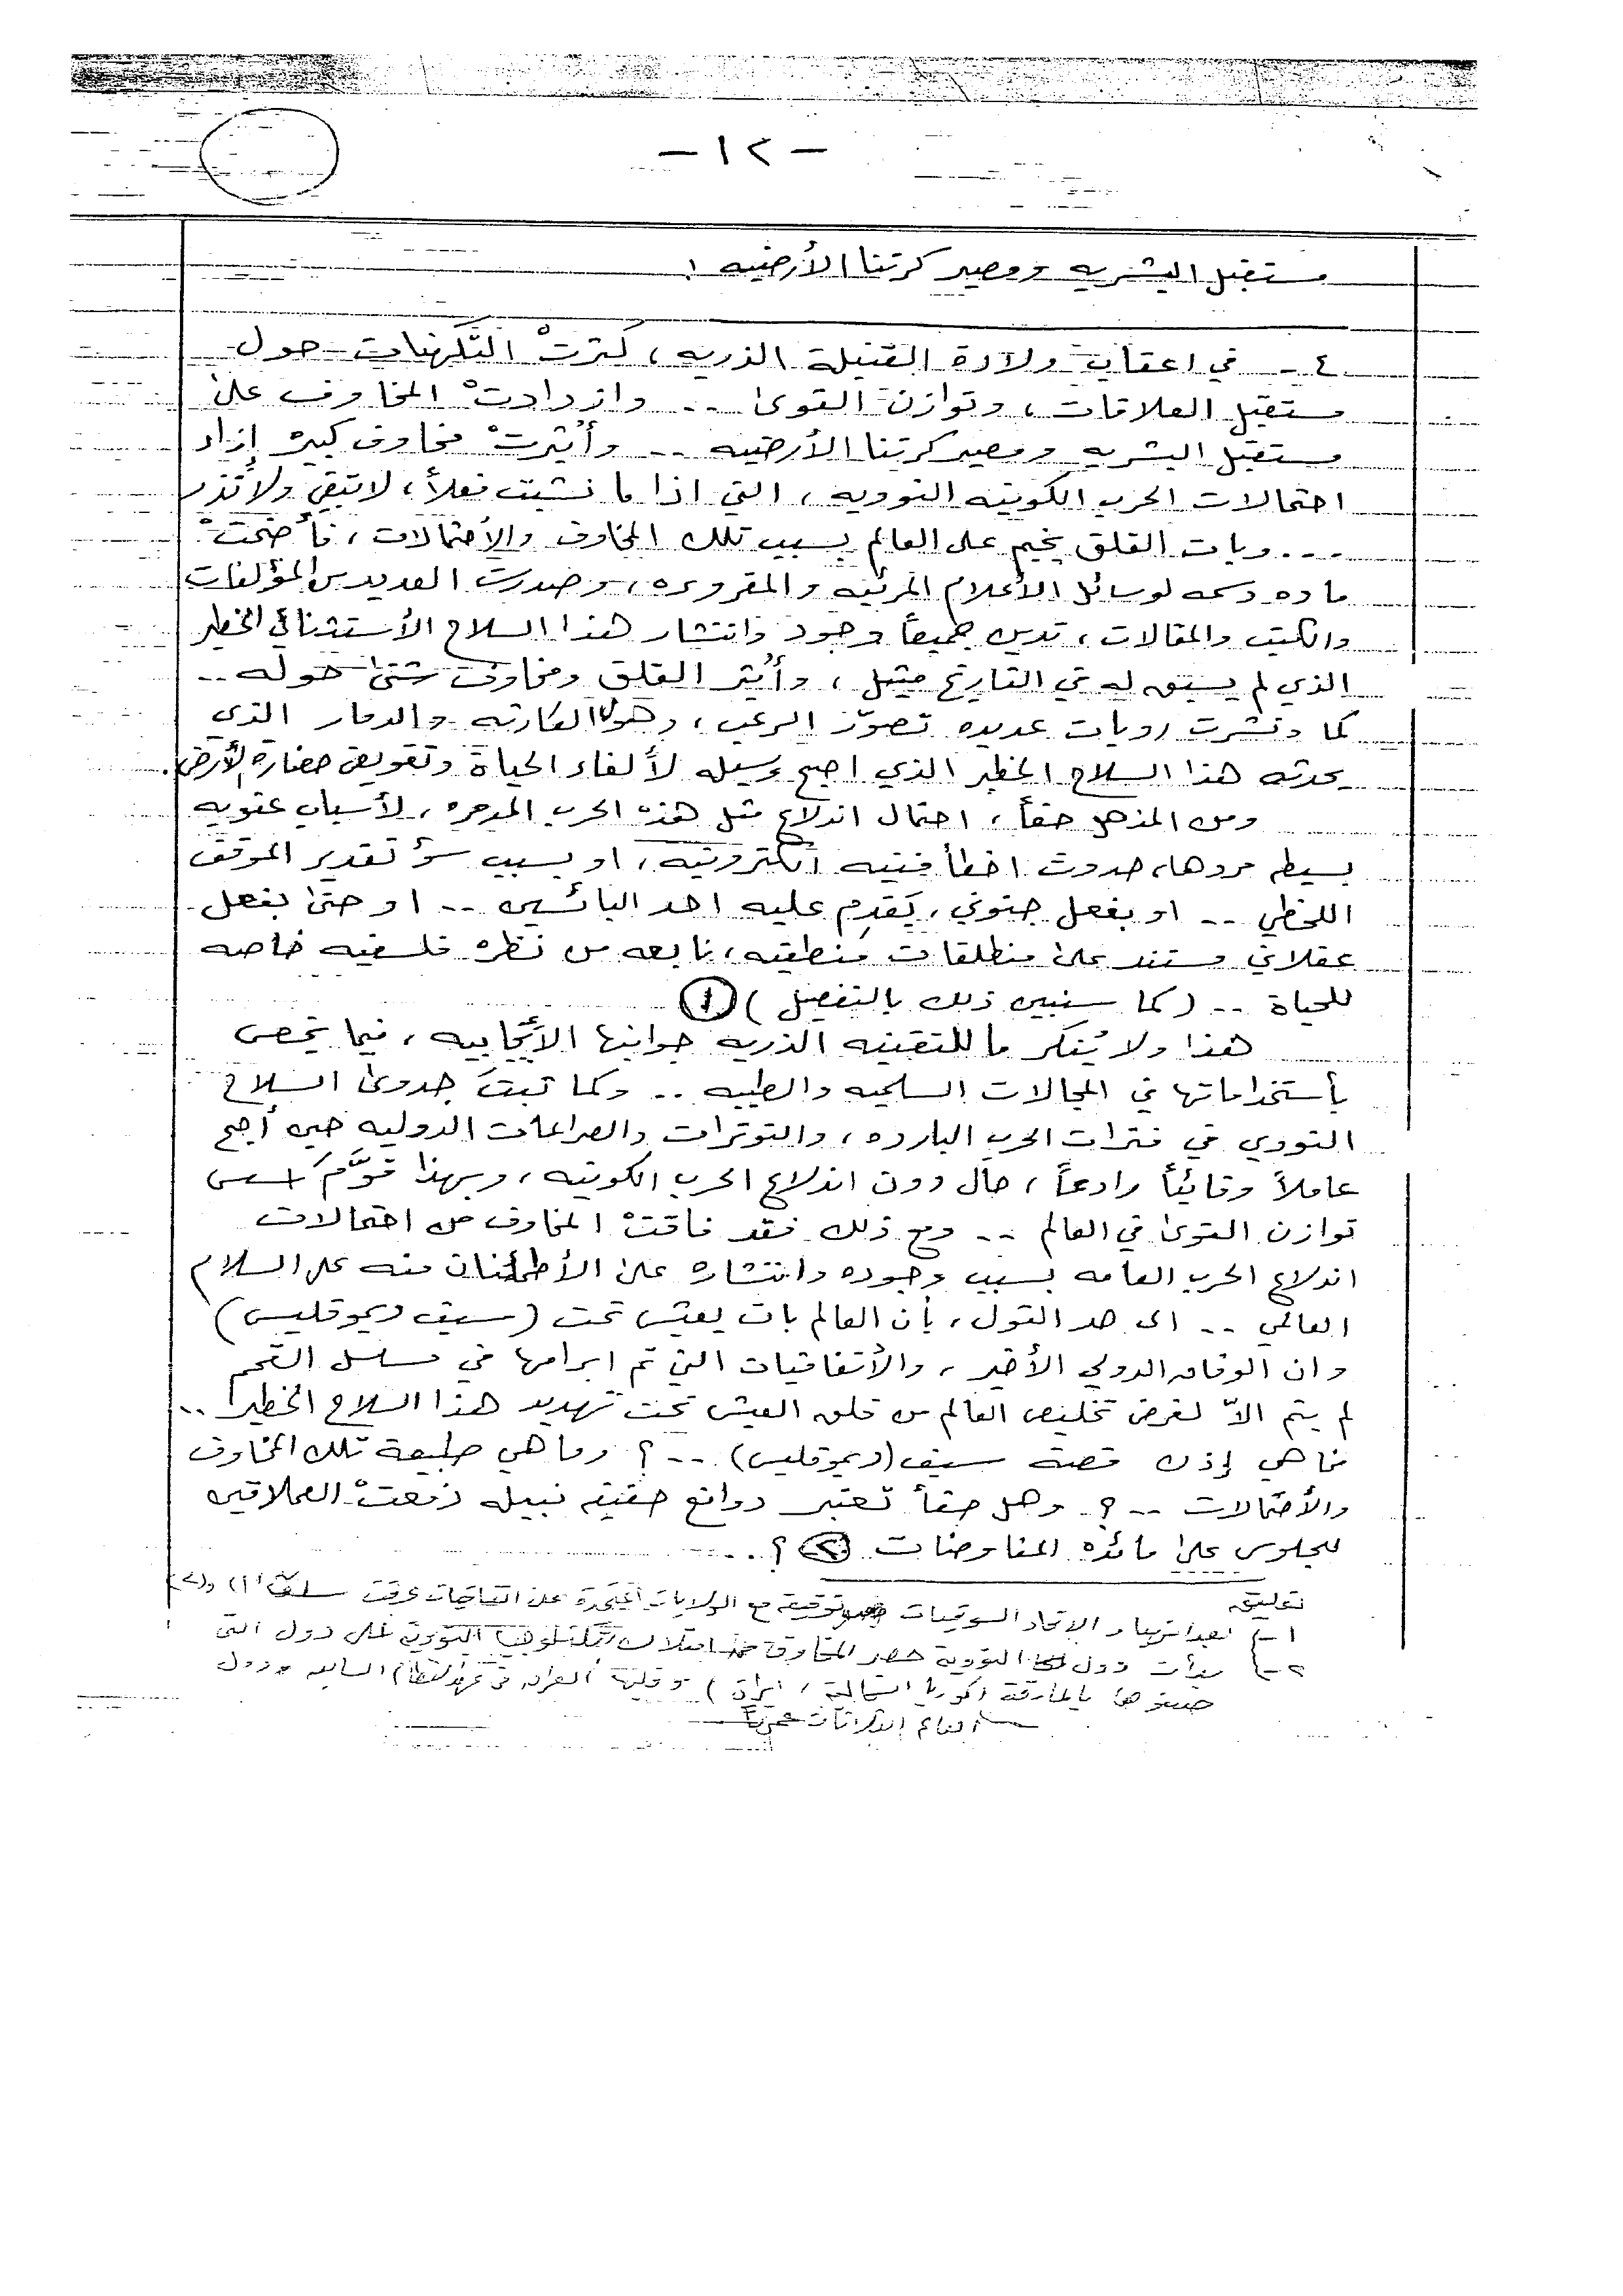 - ١٢ -
مستقبل البشريه ومصير كرتنا الأرضيه !
٤ - في اعقاب ولادة القنبلة الذريه ، كثرتْ التكهنات حول
مستقبل العلاقات ، وتوازن القوى .. وازدادتْ المخاوف على
مستقبل البشريه ومصير كرتنا الأرضيه .. وأُثيرتْ مخاوف كبيره إزاء
احتمالات الحرب الكونيه النوويه ، التي اذا ما نشبت فعلاً ، لا تبقي ولا تُذر
... وبات القلق يخيم على العالم بسبب تلك المخاوف والإحتمالات ، فأضحتْ
ماده دسمه لوسائل الأعلام المرئيه والمقروءه ، وصدرت العديد من المؤلفات
والكتب والمقالات ، تدين جميعاً وجود وانتشار هذا السلاح الأستثنائي الخطير
الذي لم يسبق له في التاريخ مثيل ، وأُثير القلق ومخاوف شتى حوله ..
كما ونشرت روايات عديده تصوّر الرعب ، وهول الكارثه والدمار الذي
يحدثه هذا السلاح الخطير الذي اصبح وسيله لألغاء الحياة وتقويض حضارة الأرض .
ومن المذهل حقاً ، احتمال اندلاع مثل هذه الحرب المدمره ، لأسباب عفويه
بسيطه مردها، حدوث اخطأ فنيه الكترونيه ، او بسبب سؤ تقدير الموقف
اللحظي .. او بفعل جنوني ، يَقدِم عليه احد اليائسين .. او حتى بفعل
عقلاني مستند على منطلقات منطقيه ، نابعه من نظره فلسفيه خاصه
للحياة .. ( كما سنبين ذلك بالتفصيل ) (١)
هذا ولا يُنكر ما للتقنيه الذريه جوانبها الأيجابيه ، فيما يخص
بأستخداماتها في المجالات السلميه والطبيه .. وكما ثبتَ جدوى السلاح
النووي في فترات الحرب البارده ، والتوترات والصراعات الدوليه حين أصبح
عاملاً وقائياً رادعاً ، حال دون اندلاع الحرب الكونيه ، وبهذا قوَّمَ اسس
توازن القوى في العالم .. ومع ذلك فقد فاقتْ المخاوف من احتمالات
اندلاع الحرب العامه بسبب وجوده وانتشاره على الأطمئنان منه على السلام
العالمي .. الى حد القول ، بأن العالم بات يعيش تحت ( سيف ديموقليس )
وان الوفاق الدولي الأخير ، والأتفاقيات التي تم ابرامها في مسلسل القمم
لم يتم الاّ لغرض تخليص العالم من قلق العيش تحت تهديد هذا السلاح الخطير ..
فما هي إذن قصة سيف ( ديموقليس ) .. ؟ وما هي طبيعة تلك المخاوف
والأحتمالات .. ؟. وهل حقاً تعتبر دوافع حقيقيه نبيله دَفعتْ العملاقين
للجلوس على مائده المفاوضات (٢) ؟ ...
تعليق
١- بعد انهيار الاتحاد السوفيات توقيعه مع الولايات المتحدة على اتفاقيات عرفت سالت (١) و(٢)
٢- بدأت دول النووية حصر المخاوف امتلاك تكنلوجيا النووية على دول التي
صنفوها بالمارقة ( كوريا الشمالية ، ايران ) وقبلها العراق في عهد النظام السابق ودول
العالم الثلاث